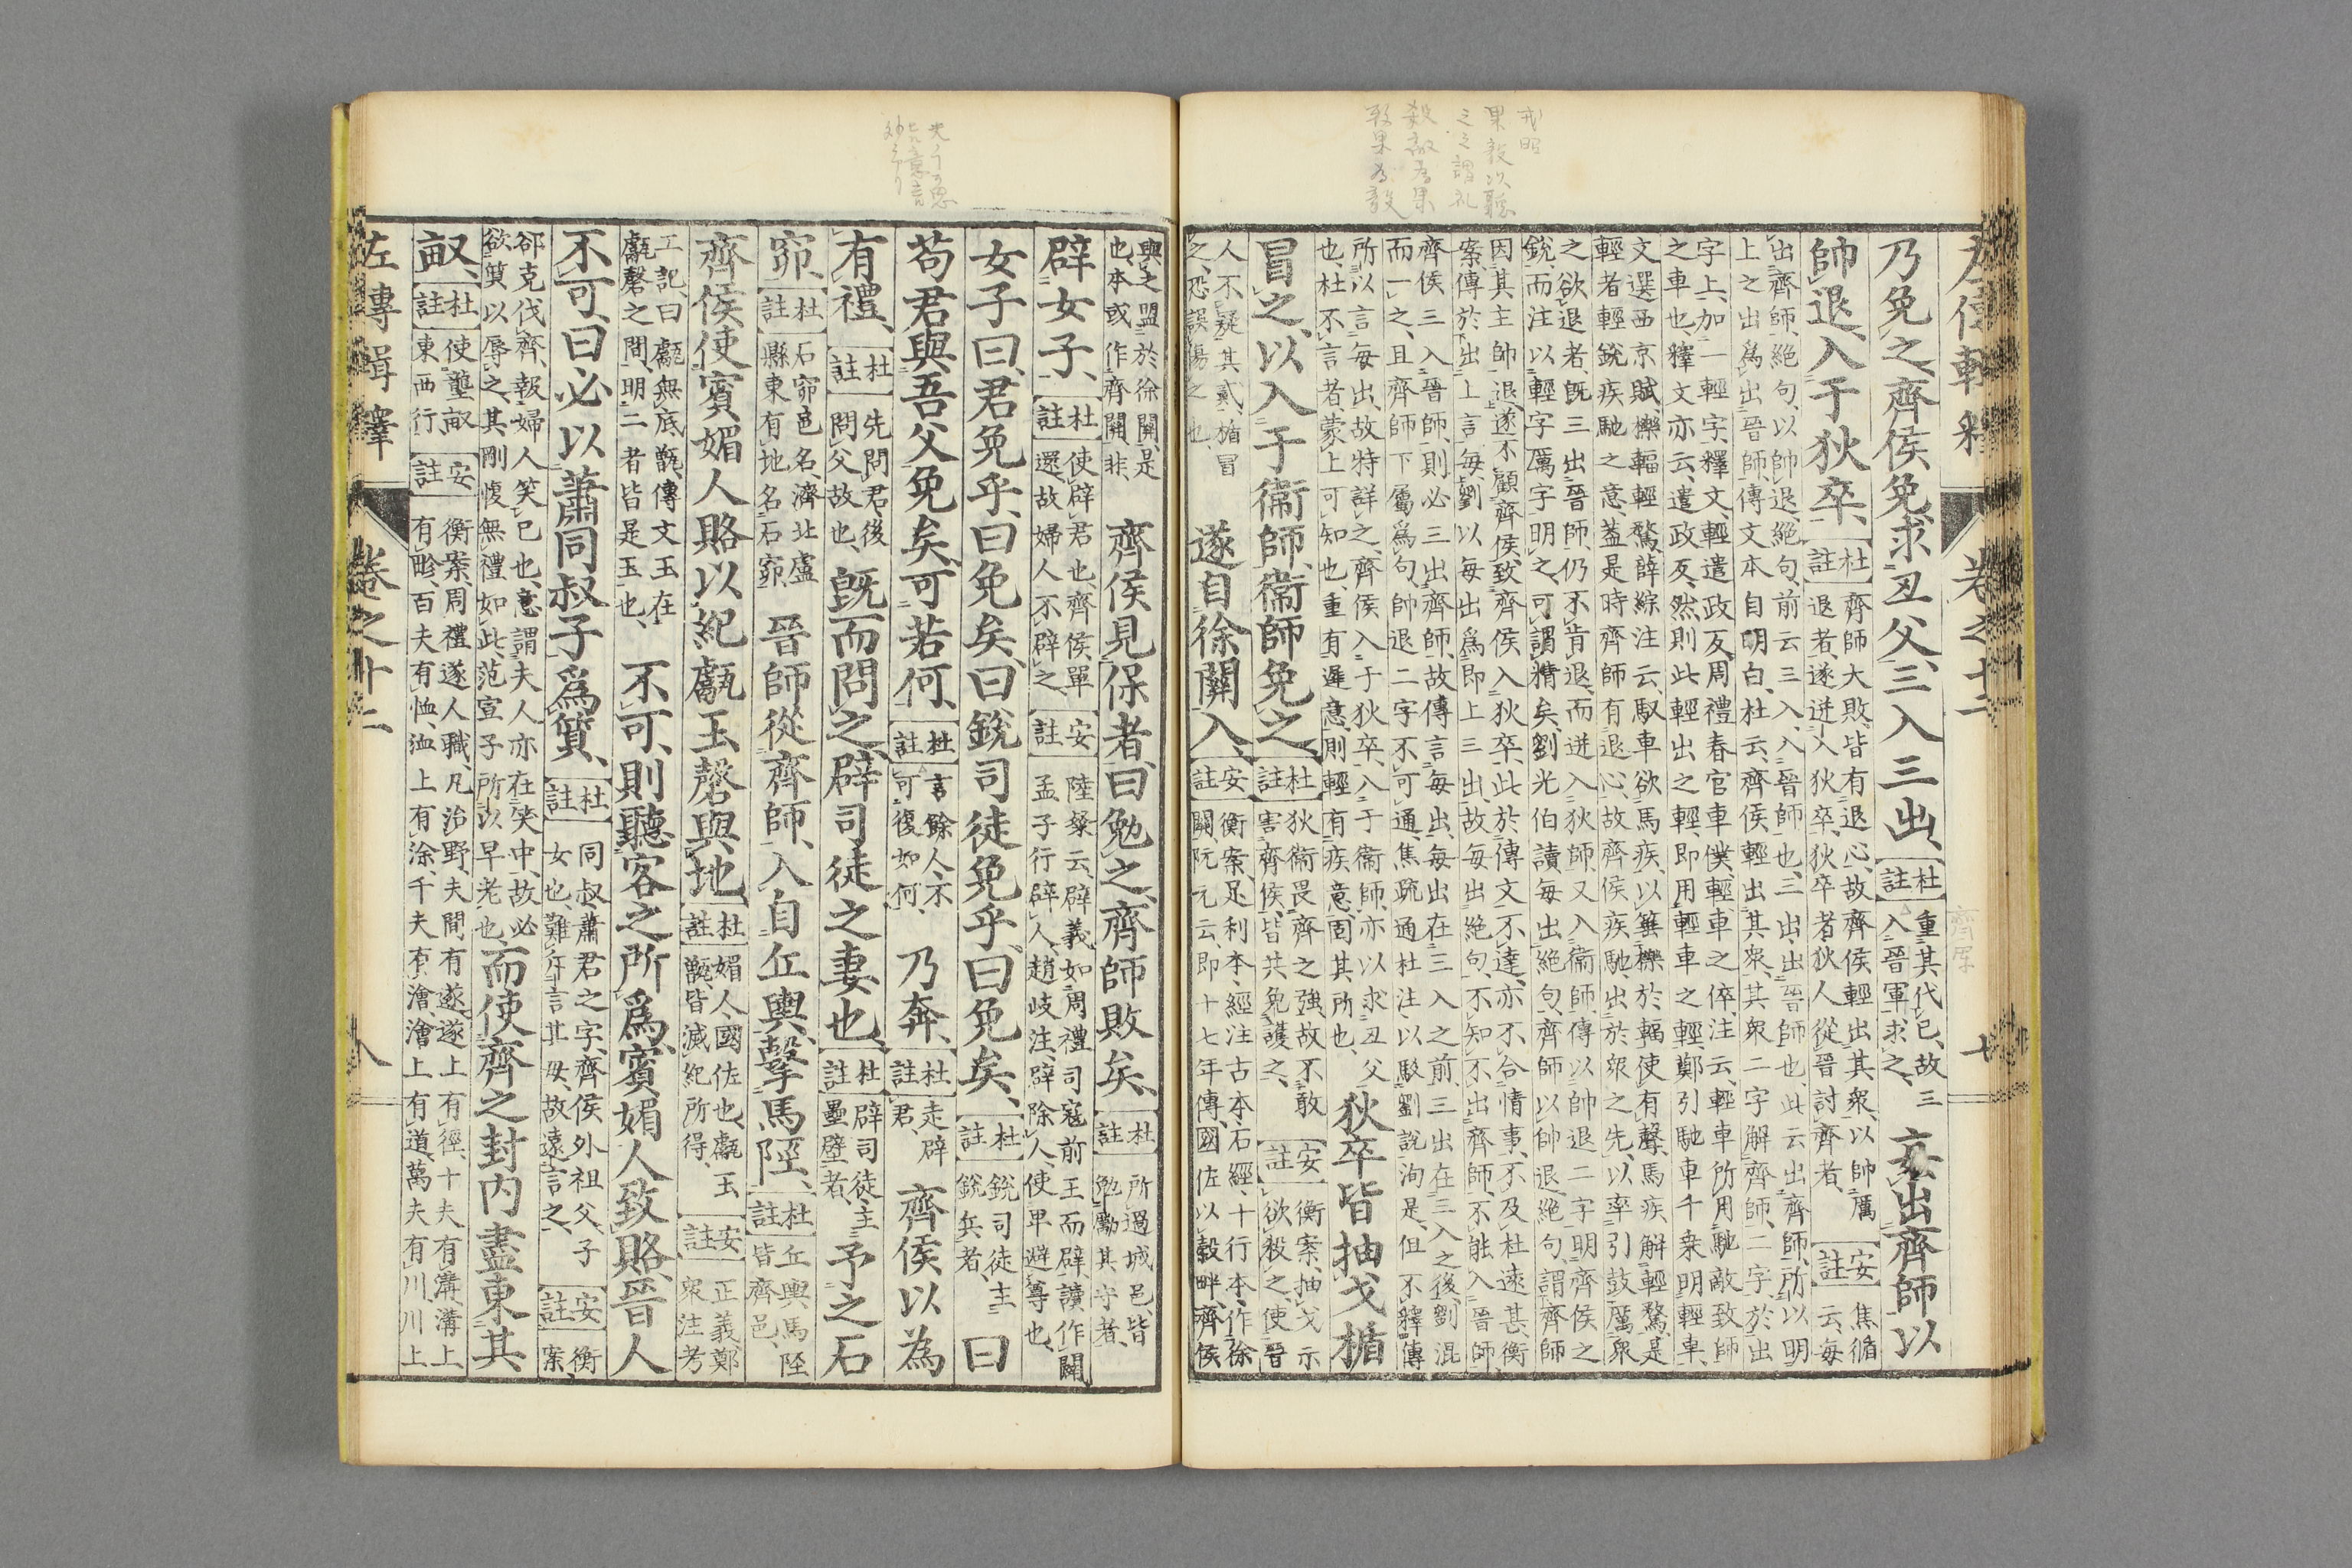 乃免之、齊侯免、求丑父、三入三出、杜註 重其代己、故三入晉軍求之、 每出、齊師以
帥退、入于狄卒、杜註 齊師大敗、皆有退心、故齊侯輕出其衆、以帥厲退者、遂迸入狄卒、狄卒者狄人從晉討齊者、 安註 焦循云、每
出齊師、絶句、以帥退、絶句、前云三入、入晉師也、三出、出晉師也、此云出齊師、所以明
上之出爲出晉師、傳文本自明白、杜云、齊侯輕出其衆、其衆二字解齊師二字、於出
字上、加一輕字、釋文輕遣政反、周禮春官車僕、輕車之倅、注云、輕車所用馳敵致師
之車也、釋文亦云、遣政反、然則此輕出之輕、即用輕車之輕、鄭引馳車千乘明輕車、
文選西京賦、櫟輻輕騖、薛綜注云、馭車欲馬疾、以箠櫟於輻、使有聲、馬疾解輕騖、是
輕者輕銳疾馳之意、蓋是時齊師有退心、故齊侯疾馳、出於衆之先、以率引鼓厲衆
之欲退者、既三出晉師、仍不肯退、而迸入狄師、又入衞師、傳以帥退二字明齊侯之
銳、而注以輕字厲字明之、可謂精矣、劉光伯讀每出絶句、齊師以帥退絶句、謂齊師
因其主帥退、遂不顧齊侯、致齊侯入狄卒、此於傳文不達、亦不合情事、不及杜遠甚、衡
案、傳於出上言每、劉以每出爲即上三出、故每出絶句、不知不出齊師、不能入晉師、
齊侯三入晉師、則必三出齊師、故傳言每出、每出在三入之前、三出在三入之後、劉混
而一之、且齊師下屬爲句、帥退二字不可通、焦疏通杜注以駁劉說洵是、但不釋傳
所以言每出、故特詳之、齊侯入于狄卒、入于衞師、亦以求丑父 狄卒皆抽戈楯
也、杜不言者、蒙上可知也、重有遲意、則輕有疾意、固其所也、
冒之、以入于衞師、衞師免之、杜註 狄衞畏齊之強、故不敢害齊侯、皆共免護之、 安註 衡案、抽戈示欲殺之、使晉
人不疑其貳、楯冒之、恐誤傷之也、 遂自徐關入、安註 衡案、足利本、經注古本、石經、十行本、作徐關、阮元云、即十七年傳、國佐以穀畔、齊侯
與之盟於徐關、是也、本或作齊關、非、 齊侯見保者、曰勉之、齊師敗矣、杜註 所過城邑、皆勉勵其守者、
辟女子、杜註 使辟君也、齊侯單還、故婦人不辟之、 安註 陸粲云、辟義如周禮司寇前王而辟、讀作闢、孟子行辟人、趙岐注、辟除人、使卑避尊也、
女子曰、君免乎、曰免矣、曰銳司徒免乎、曰免矣、杜註 銳司徒、主銳兵者、 曰
苟君與吾父免矣、可若何、杜註 言餘人不可復如何、 乃奔、杜註 走辟君、 齊侯以為
有禮、杜註 先問君、後問父故也、 既而問之、辟司徒之妻也、杜註 辟司徒、主壘壁者、 予之石
窌、杜註 石窌邑名、濟北盧縣東有地名石窌、 晉師從齊師、入自丘輿、擊馬陘、杜註 丘輿馬陘皆齊邑、
齊侯使賓媚人賂以紀甗玉磬與地、杜註 媚人、國佐也、甗玉甑、皆滅紀所得、 安註 正義、鄭衆注考
工記、曰甗無底甑、傳文玉在甗磬之間、明二者皆是玉也、 不可、則聽客之所爲、賓媚人致賂、晉人
不可、曰必以蕭同叔子爲質、杜註 同叔、蕭君之字、齊侯外祖父、子女也、難斥言其母、故遠言之、 安註 衡案、
郤克伐齊、報婦人笑己也、意謂夫人亦在笑中、故必欲質以辱之、其剛愎無禮如此、范宣子所以早老也、 而使齊之封内盡東其
畝、杜註 使壟畝東西行、 安註 衡案、周禮遂人職、凡治野、夫間有遂、遂上有徑、十夫有溝、溝上有畛、百夫有洫、洫上有涂、千夫有澮、澮上有道、萬夫有川、川上
左傳輯釋 卷之十二 八